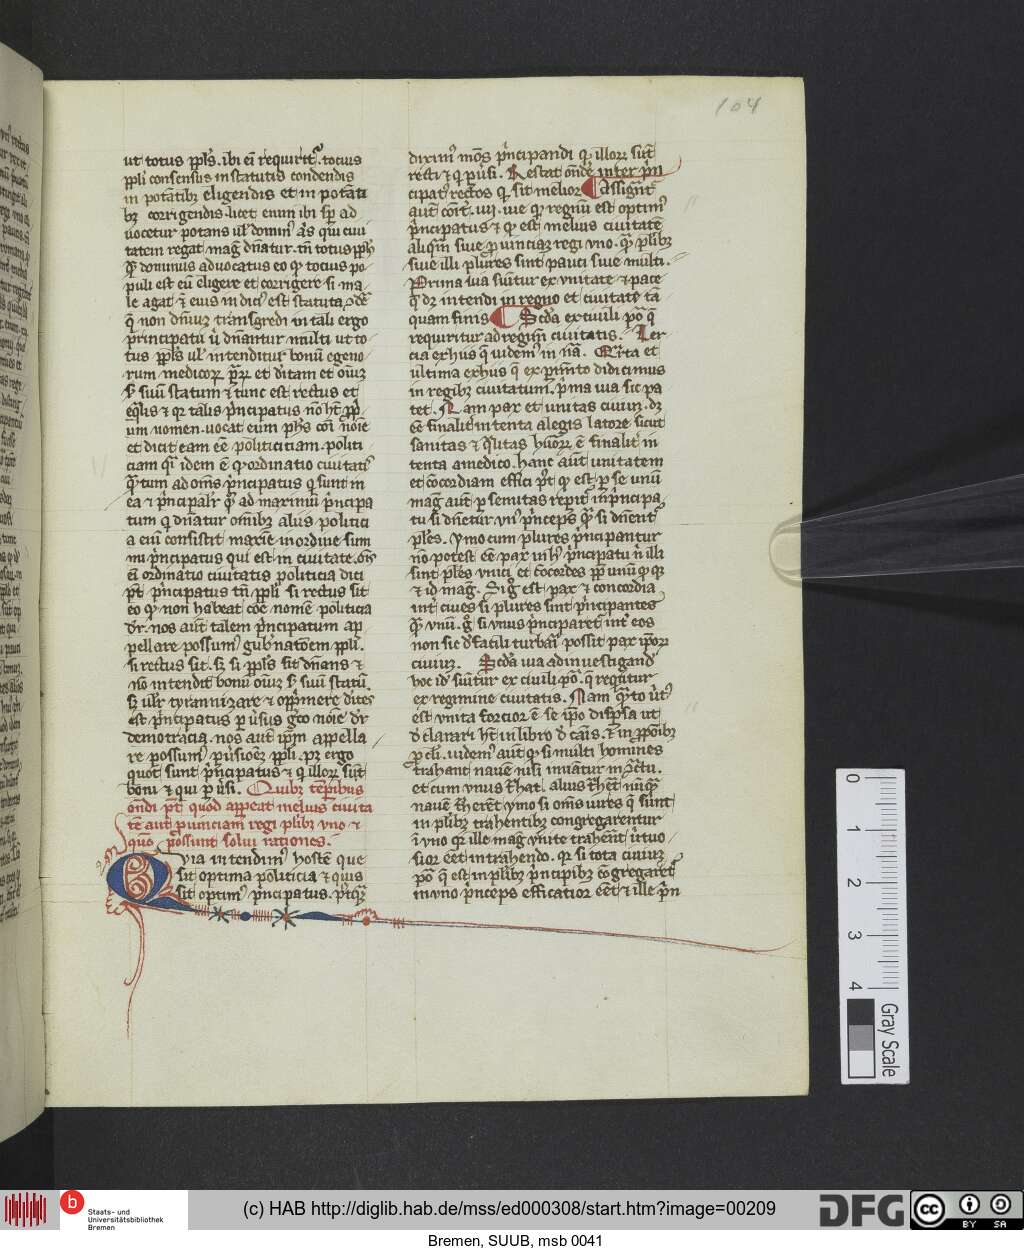 104
ut totus ppls. ibi eī requirit᷑. tocius
ppli consensus in statutis condendis
in potātibꝫ eligendis et in potāti
bꝫ corrigendis. licet enim ibi sp̄ ad
uocetur potans ul' domin᷒ aꝗs qui ciui
tatem regat mag̅ dn̄atur. tn̄ totus pplꝫ
q̄ dominus aduocatus eo ꝙ tocius po-
puli est eū eligere et corrigere si ma-
le agat ⁊ eius indicī est statuta
q̄ non transgredi in tali ergo
principatu dn̄antur multi ut to-
tus ppls ul' intenditur bonū egeno-
rum et ditam et
suū statum ⁊ tunc est rectus et
eq̄lis ⁊ qꝛ talis pͥncipatus nō hꝫ
um nomen. uocat eum phs
et dicit eam eē politiciam. politi-
ciam q̄si idem ē ꝙ ordinatio ciuitatis
q̄tum ad om̄s pͥncipatus q̄ sunt in
ea ⁊ pͥncipalr̄ ad maximū pͥncipa
tum q̄ dn̄atur om̄ibꝫ aliis politici
a enī consistit maxīe in ordine sum
mi pͥncipatus qui est in ciuitate. om̄is
eī ordinatio ciuitatis politicia dici
pͭ pͥncipatus tn̄ ppli si rectus sit
eo ꝙ non habeat cōe nomē politicia
dr̄. nos aut̄ talem pͥncipatum ap
pellare possum᷒ gub'natōem ppli.
si rectus sit. Sꝫ si ppls sit dn̄ans ⁊
nō intendit bonū suū statū.
sꝫ uult tyrannizare ⁊ oppͥmere diites
est pͥncipatus ꝑuersus gͣco noīe dr̄
democratia. nos aut̄ ipm̄ appella
re possum᷒ ꝑuersioēꝫ ppli. pꝫ ergo
quot sunt pͥncipatus ⁊ q̄ illoꝝ sūt
boni ⁊ qui ꝑuersi. Quibꝫ
on̄di pͭ quod appeat melius ciuita
tē aut ꝓuinciam regi plibꝫ uno ⁊
quo possunt solui rationes.
Quia intendim᷒ hostē que
sit optima politicia ⁊ quis
sit optim᷒ pͥncipatus.
dixim᷒ mōs pͥncipandi q̄ illoꝝ sūt
recti ⁊ q̄ ꝑuersi. Restat on̄dē inter pͥn
cipat᷒ rectos qͥ sit melior Assignt̄
aut̄ iiii. uie qꝫ regnū est optim᷒
pͥncipatus ⁊ ꝙ est melius ciuitatē
aliqm̄ siue ꝓuinciaꝫ regi uno. q̄ plibꝫ
siue illi plures sint pauci siue multi.
Prima uia sumitur ex unitate ⁊ pace
q̄ dꝫ intendi in regno et ciuitate tā
quam finis Sc̄da ex ciuili pōª q̄
requiritur ad regim̄ ciuitatis. Ter-
cia ex hiis q̄ uidem᷒ in nͣ. Quarta et
ultima ex hiis q̄ experimento didicimus
in regibꝫ ciuitatum. pͥma uia sic pa
tet. Nam pax et unitas ciuiuꝫ dꝫ
eē finalit̄ intenta a legis latore sicut
sanitas ⁊ eqͣlitas huōꝝ ē finalit̄ in
tenta a medico. hanc aut̄ unitatem
et cōcordiam effici pͭ ꝙ est ꝑ se unū
mag̅ aut̄ ꝑ se unitas repit᷑ in pͥncipa
tu si dn̄etur un᷒ pͥnceps q̄ si dn̄ent᷑
ples. ymo cum plures pͥncipantur
nō potest eē pax in hͦ pͥncipatu nͥ illi
sint ples unici et cōcordes
⁊ id mag̅. Si gͦ est pax ⁊ concordia
int̄ ciues si plures sint pͥncipantes
q̄ unū. gͦ si unus pͥnciparet int̄ eos
non sic de facili turbari possit pax ipoꝝ
ciuiuꝫ. Sc̄da uia ad inuestigand᷒
hoc id' sumitur ex ciuili pōª. q̄ reqͥritur
ex regimine ciuitatis. Nam q̄to uͥt᷒
est unita forcior ē se ipā disp̄sa ut
declarari hꝫ in libro de cāis. ⁊ in
. uidem᷒ aut̄ ꝙ si multi homines
trahant nauē nisi
et cum unus t̄hat. alius t̄het
nauē t̄herēt ymo si om̄s uires q̄ sunt
in plibꝫ trahentibꝫ congregarentur
in uno qꝛ ille mag̅ unite traheret uͥtuo-
sior eēt in trahendo. qꝛ si tota ciuiuꝫ
pōª q̄ est in plibꝫ pͥncipibꝫ cōgregaret᷑
in uno pͥnceps efficatior eēt ⁊ ille pͥn
0
1
2
3
4
Gray Scale
b
Staats- und
Universitätsbibliothek
Bremen
(c) HAB http://diglib.hab.de/mss/ed000308/start.htm?image=00209
DFG
cc
BY SA
Bremen, SUUB, msb 0041